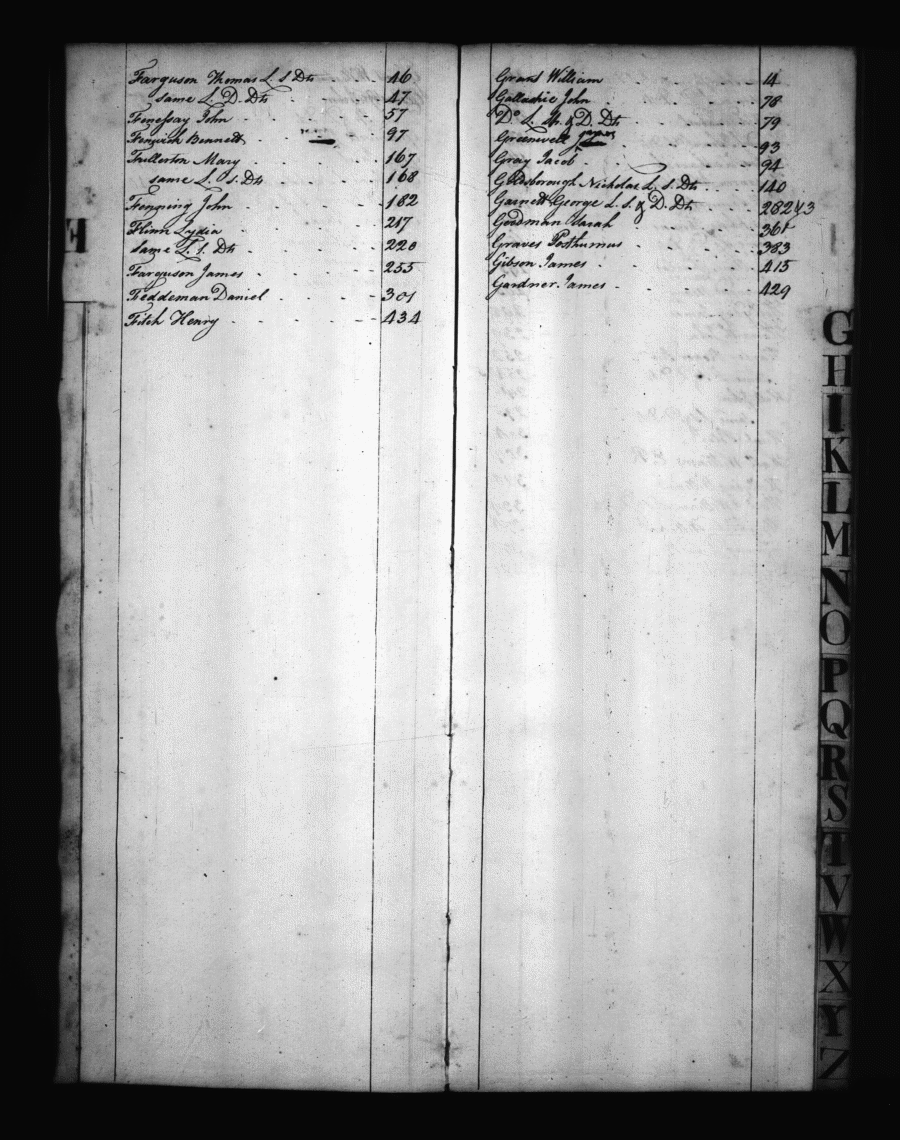 Farguson Thomas L. S Dts 46
same L. D. Dts 47
Fenessay John 57
Fenwick Bennett 97
Fullerton Mary 167
same L. S. Dts 168
Fenning John 182
Flinn Lydia 217
same L. S. Dts 220
Farguson James 255
Feddeman Daniel 301
Fitch Henry 434
F
Grant William 4
Gallachie John 78
Do L. St. & D. Dts 79
Greenwell James 93
Gray Jacob 94
Goldsborough Nicholas L. S. Dts 140
Garnett George L. S. & D. Dts 282 & 3
Goodman Sarah 361
Graves Posthumus 383
Gibson James 415
Gardner James 429
G
H
I
K
L
M
N
O
P
Q
R
S
T
V
W
X
Y
Z